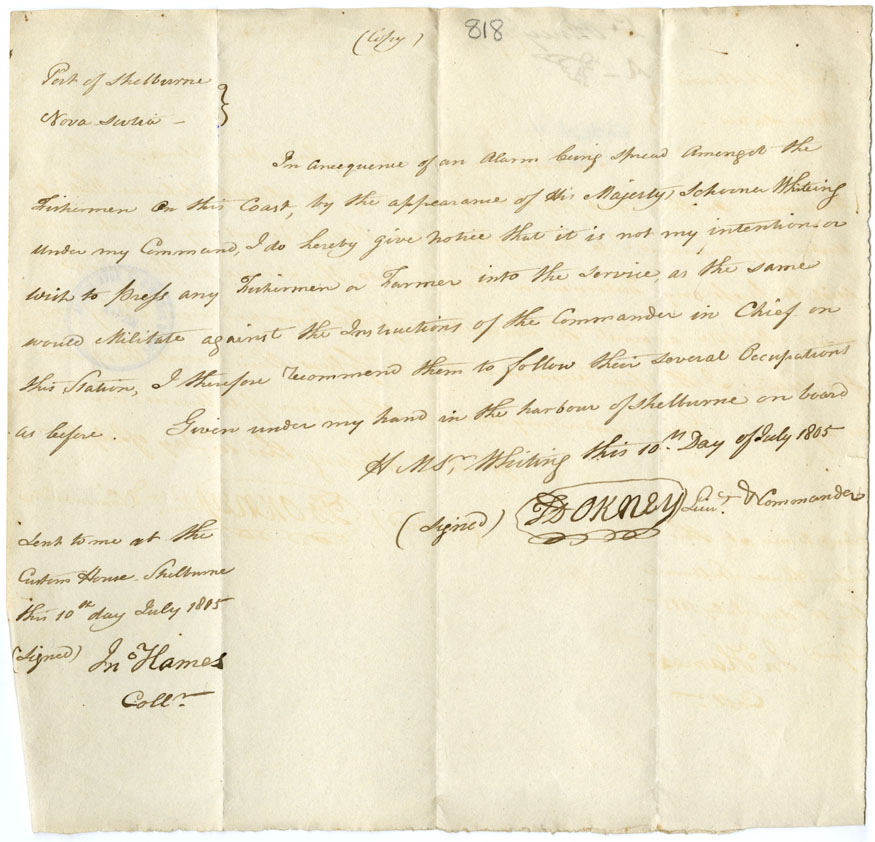 (Copy) 818
Port of Shelburne
Nova Scotia —
In concequence of an Alarm being spread Amongst the
Fishermen on this Coast, by the appearance of His Majestys Schooner Whiteing
under my Command, I do hereby give notice that it is not my intention or
wish to Press any Fishermen or Farmer into the Service, as the same
would Militate against the Instructions of the Commander in Chief on
this Station, I therefore recommend them to follow their several Occupations
as before. Given under my hand in the harbour of Shelburne on board
H M Sr. Whiting this 10th Day of July 1805
(Signed) ORKNEY Lieut. & Commander
Sent to me at the
Custom House Shelburne
this 10th day July 1805
(Signed) Jno Hames
Collr